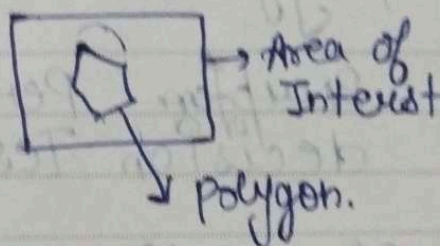 Area of
Interest
polygon.